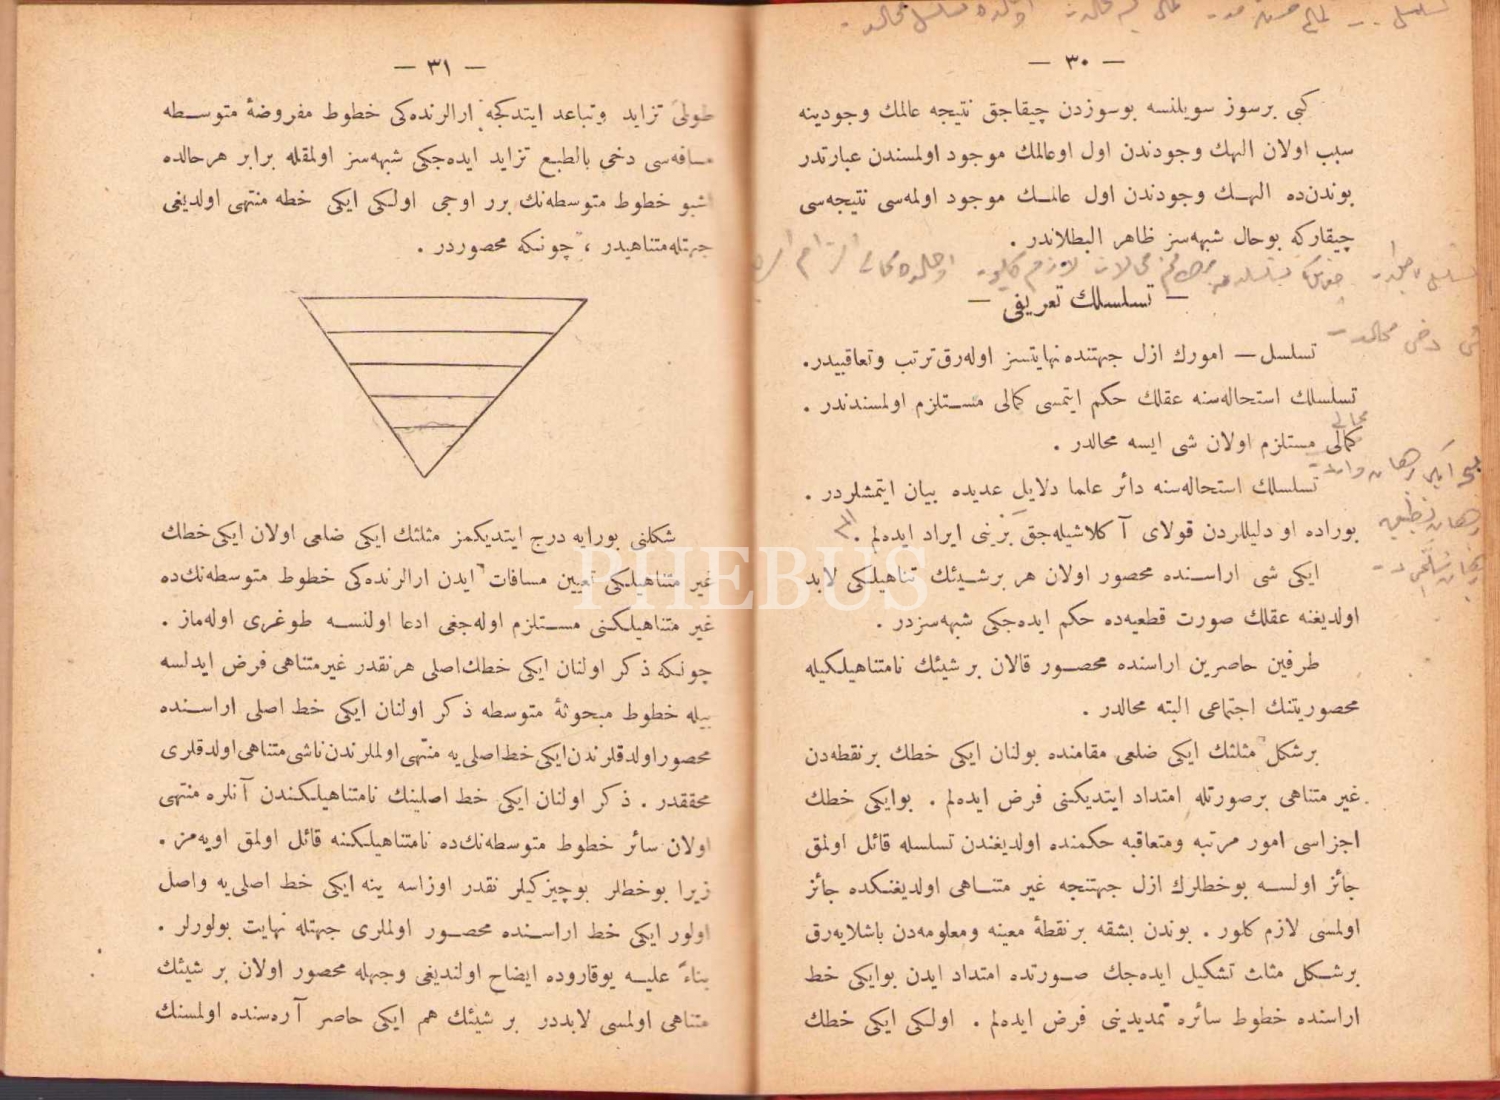 — ٣٠ —
كبی برسوز سويلنسه بوسوزدن چيقاجق نتيجه عالمك وجودينه
سبب اولان الهك وجودندن اول اوعالمك موجود اولمسندن عبارتدر
بوندن‌ده الهك وجودندن اول عالمك موجود اولمه‌سی نتيجه‌سی
چيقاركه بوحال شبهه‌سز ظاهر البطلاندر .
— تسلسلك تعريفی —
تسلسل — امورك ازل جهتنده نهايتسز اوله‌رق ترتب وتعاقبيدر.
تسلسلك استحاله‌سنه عقلك حكم ايتمسی محالی مستلزم اولمسندندر .
محالی مستلزم اولان شی ايسه محالدر .
تسلسلك استحاله‌سنه دائر علما دلايل عديده بيان ايتمشلردر .
بوراده او دليللردن قولای آكلاشيله‌جق برينی ايراد ايده‌لم .
ايكی شی اراسنده محصور اولان هر برشيئك تناهيلكی لابد
اولديغنه عقلك صورت قطعيه‌ده حكم ايده‌جكی شبهه‌سزدر .
طرفين حاصرين اراسنده محصور قالان بر شيئك نامتناهيلكيله
محصوريتنك اجتماعی البته محالدر .
برشكل مثلثك ايكی ضلعی مقامنده بولنان ايكی خطك برنقطه‌دن
غير متناهی برصورتله امتداد ايتديكنی فرض ايده‌لم . بوايكی خطك
اجزاسی امور مرتبه ومتعاقبه حكمنده اولديغندن تسلسله قائل اولمق
جائز اولسه بوخطلرك ازل جهتنجه غير متناهی اولديغنكده جائز
اولمسی لازم كلور . بوندن بشقه برنقطهٔ معينه ومعلومه‌دن باشلايه‌رق
برشكل مثلث تشكيل ايده‌جك صورتده امتداد ايدن بوايكی خط
اراسنده خطوط سائره تمديدينی فرض ايده‌لم . اولكی ايكی خطك
— ٣١ —
طولی تزايد وتباعد ايتدكجه ارالرنده‌كی خطوط مفروضهٔ متوسطه
مسافه‌سی دخی بالطبع تزايد ايده‌جكی شبهه‌سز اولمقله برابر هرحالده
اشبو خطوط متوسطه‌نك برر اوجی اولكی ايكی خطه منتهی اولديغی
جهتله متناهيدر ، چونكه محصوردر .
شكلنی بورايه درج ايتديكمز مثلثك ايكی ضلعی اولان ايكی خطك
غير متناهيلكی تعيين مسافات ايدن ارالرنده‌كی خطوط متوسطه‌نك‌ده
غير متناهيلكنی مستلزم اوله‌جغی ادعا اولنسه طوغری اوله‌ماز .
چونكه ذكر اولنان ايكی خطك اصلی هرنقدر غيرمتناهی فرض ايدلسه
بيله خطوط مبحوثهٔ متوسطه ذكر اولنان ايكی خط اصلی اراسنده
محصور اولدقلرندن ايكی خط اصلی‌يه منتهی اولملرندن ناشی متناهی اولدقلری
محققدر . ذكر اولنان ايكی خط اصلينك نامتناهيلكندن آنلره منتهی
اولان سائر خطوط متوسطه‌نك‌ده نامتناهيلكنه قائل اولمق اويه‌مز .
زيرا بوخطلر بوچيزكيلر نقدر اوزاسه ينه ايكی خط اصلی‌يه واصل
اولور ايكی خط اراسنده محصور اولملری جهتله نهايت بولورلر .
بناءً عليه يوقاروده ايضاح اولنديغی وجهله محصور اولان بر شيئك
متناهی اولمسی لابددر بر شيئك هم ايكی حاصر آره‌سنده اولمسنك
PHEBUS